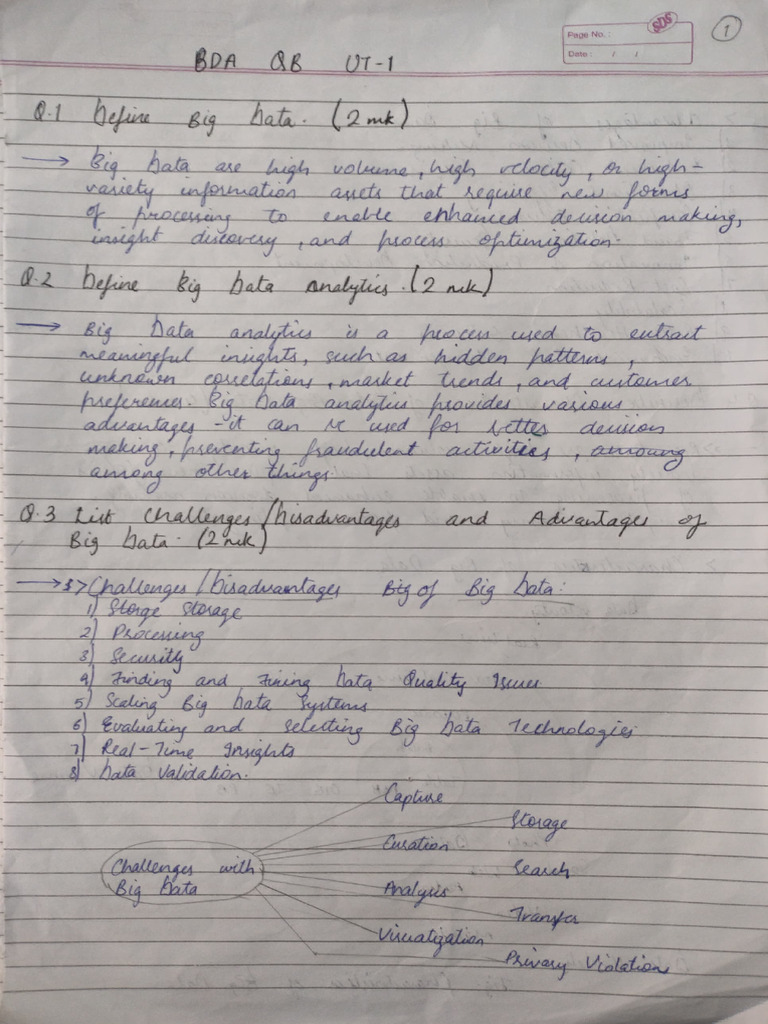 SDS
Page No. :
Date : / /
1
BDA QB UT-1
Q.1 Define Big Data. (2 mk)
→ Big Data are high volume, high velocity, or high-
variety information assets that require new forms
of processing to enable enhanced decision making,
insight discovery, and process optimization.
Q.2 Define Big Data Analytics. (2 mk)
→ Big Data analytics is a process used to extract
meaningful insights, such as hidden patterns,
unknown correlations, market trends, and customer
preferences. Big Data analytics provides various
advantages - it can be used for better decision
making, preventing fraudulent activities, amoung
among other things.
Q.3 List Challenges/Disadvantages and Advantages of
Big Data. (2 mk)
→ Challenges/Disadvantages Big of Big Data:
1) Storge Storage
2) Processing
3) Security
4) Finding and Fixing Data Quality Issues
5) Scaling Big Data Systems
6) Evaluating and Selecting Big Data Technologies
7) Real-Time Insights
8) Data Validation.
Capture
Storage
Curation
Challenges with
Big Data
Search
Analysis
Transfer
Visualization
Privacy Violation